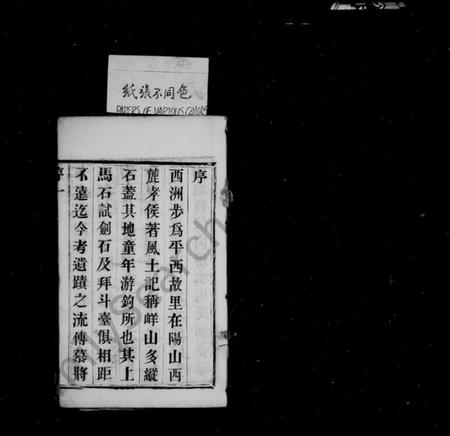 紙張不同色
PAPERS OF VARIOUS COLORS
序
西洲步為平西故里在陽山西
麓孝侯著風土記稱峴山多縱
石蓋其地童年游釣所也其上
馬石試劍石及拜斗臺俱相距
不遠迄今考遺蹟之流傳慕將
序一